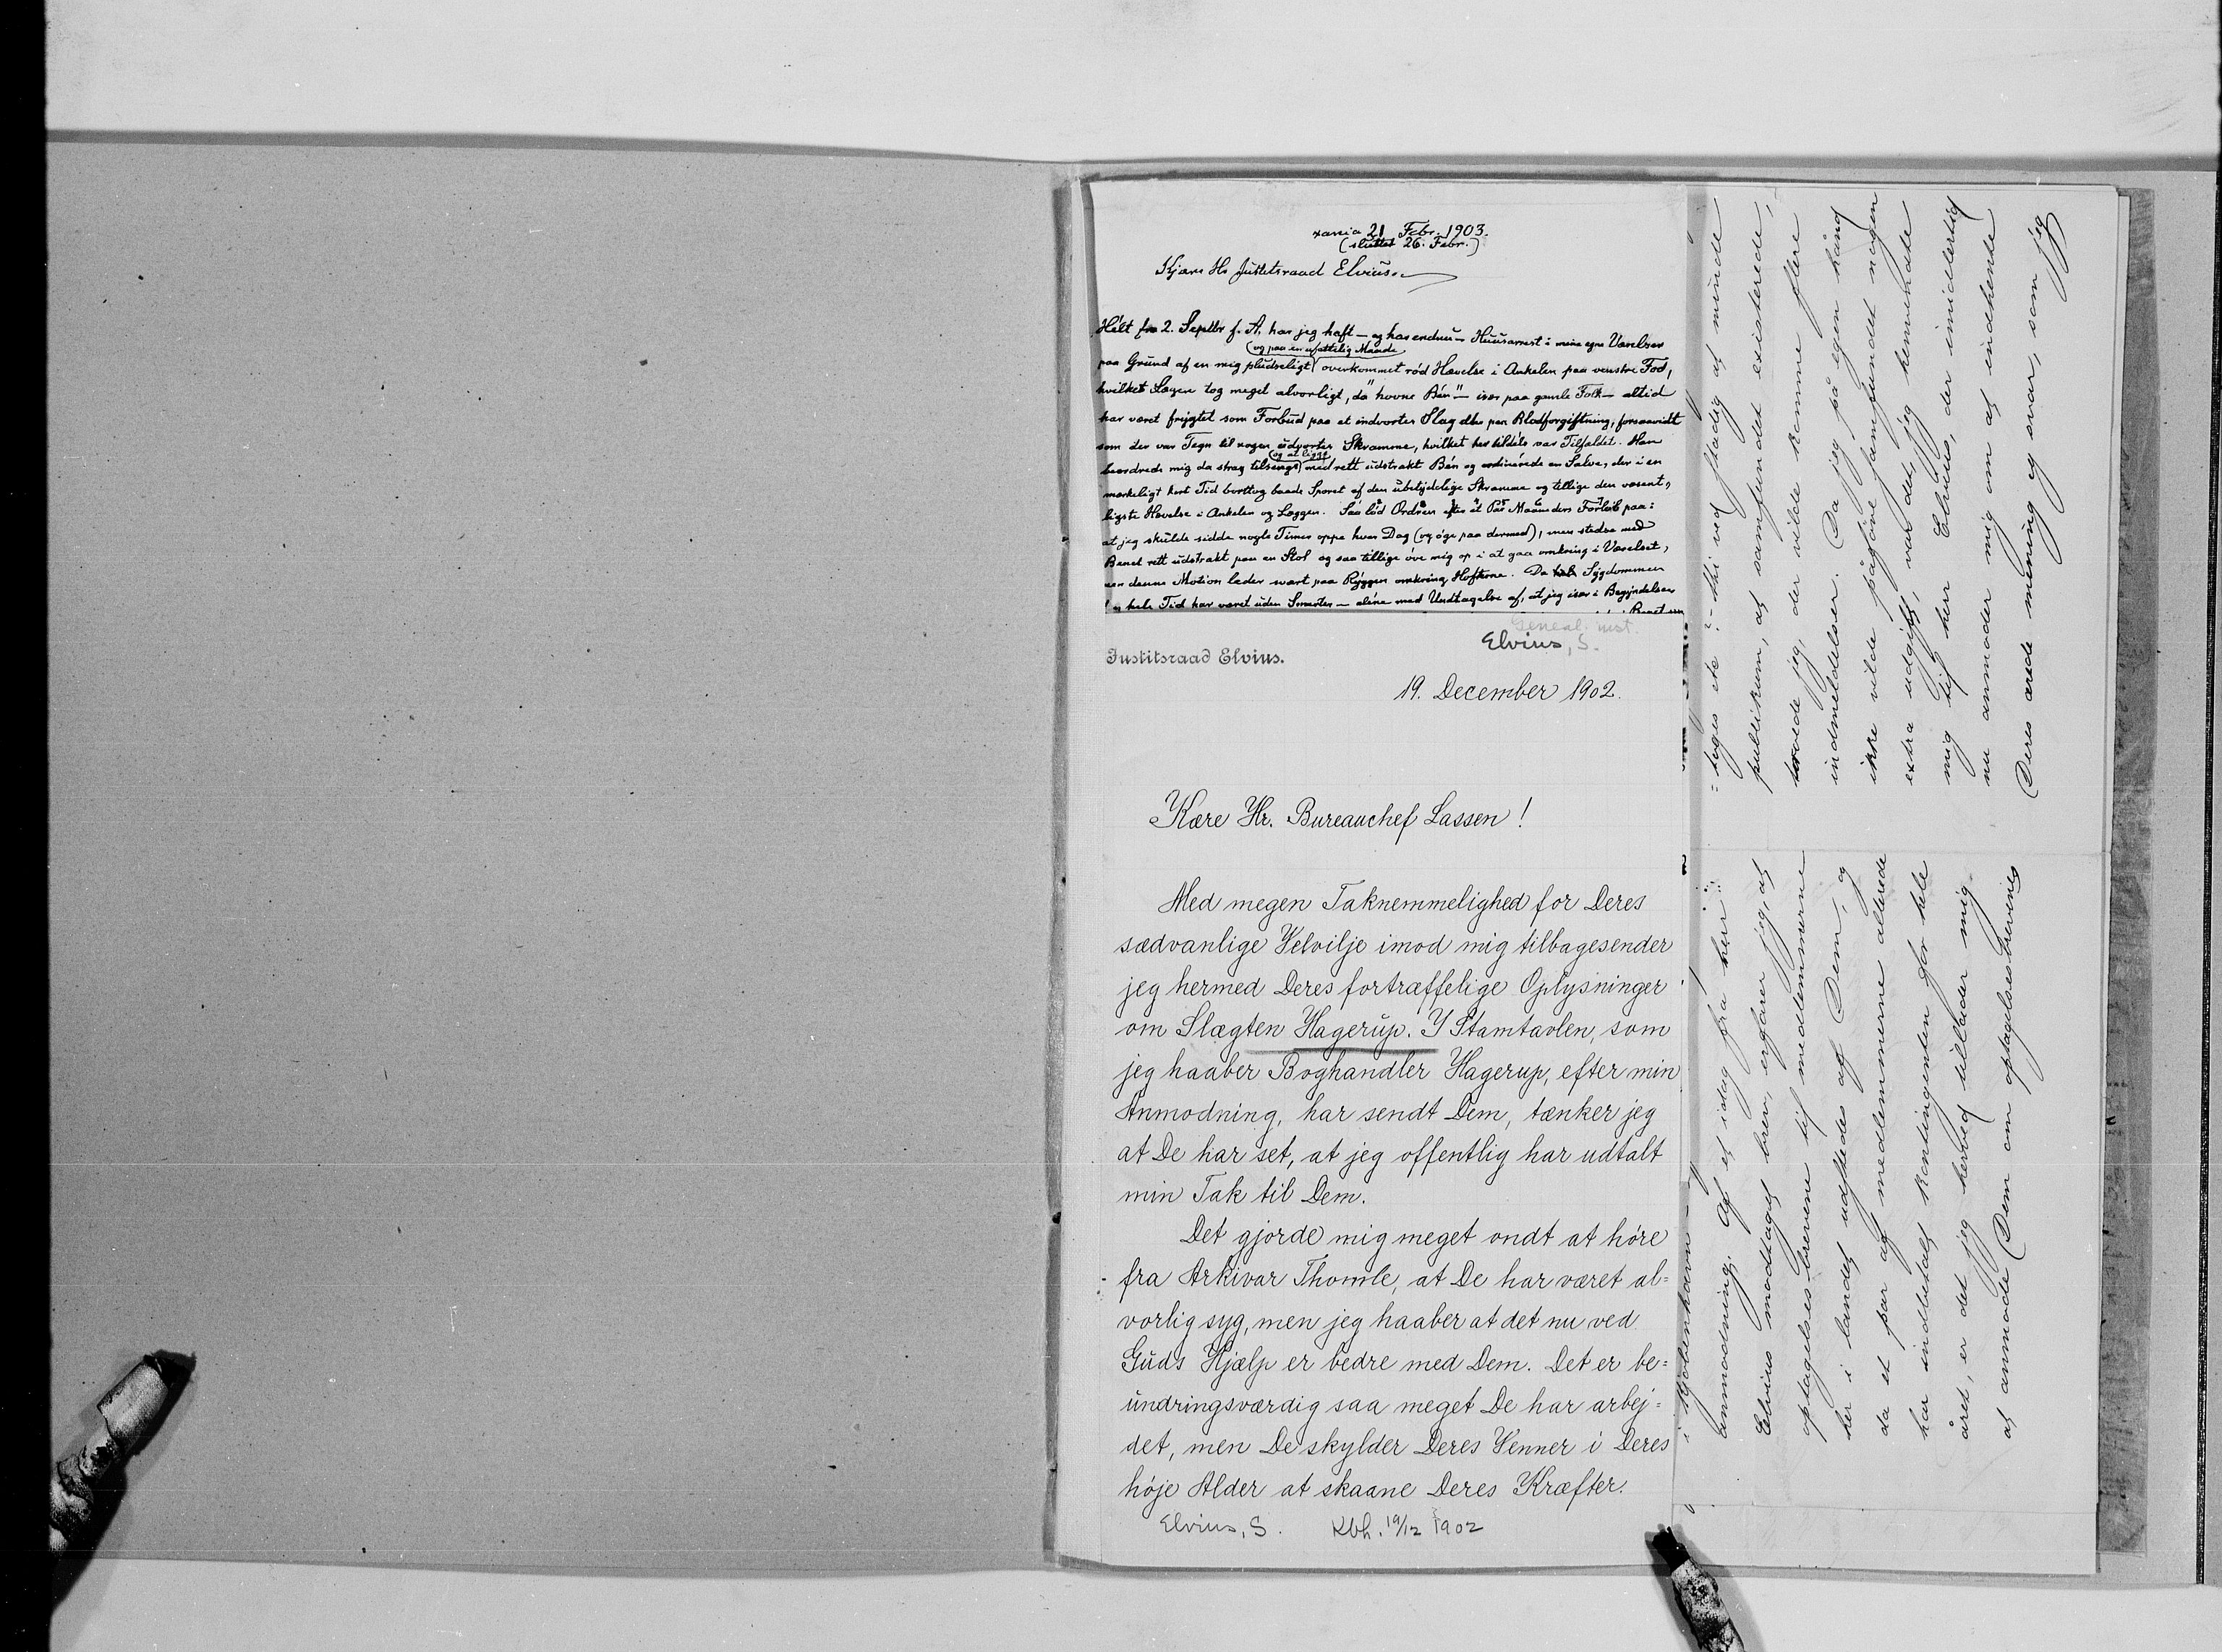 xania 21 Febr. 1903.
(sluttet 26. Febr.)
Kjære Hr Justitsraad Elvius.
Hélt fra 2. Septbr f. A. har jeg haft — og har endnu — Huusarrest i mine egne Værelser
(og paa en ufattelig Maade
paa Grund af en mig pludseligt) overkommet rød Hævelse i Ankelen paa venstre Fod,
hvilket Lægen tog meget alvorligt, da "hovne Bén" — især paa gamle Folk — altid
har været frygtet som Forbud paa et indvortes Slag eller paa Blodforgiftning, forsaavidt
som der var Tegn til nogen udvortes Skramme, hvilket her tildéls var Tilfældet. Han
(og at ligge
beordrede mig da strax tilsengs) med rett udstrakt Bén og ordinérede en Salve, der i en
mærkeligt kort Tid borttog baade Sporet af den ubetydelige Skramme og tillige den væsent,
ligste Hævelse i Ankelen og Læggen. Saa lød Ordren efter et Par Maaneders Forløb paa:
at jeg skulde sidde nogle Timer oppe hver Dag (og øge paa dermed), men stedse med
Benet rett udstrakt paa en Stol og saa tillige øve mig op i at gaa omkring i Værelset,
men denne Motion leder svært paa Ryggen omkring Hofterne. Da Sygdommen
hele Tid har været uden Smerter — aléne med Undtagelse af, at jeg især i Begyndelsen
Geneal. inst.
Elvius, S.
Justitsraad Elvius.
19. December 1902.
Kære Hr. Bureauchef Lassen!
Med megen Taknemmelighed for Deres
sædvanlige Velvilje imod mig tilbagesender
jeg hermed Deres fortræffelige Oplysninger
om Slægten Hagerup. I Stamtavlen, som
jeg haaber Boghandler Hagerup, efter min
Anmodning, har sendt Dem, tænker jeg
at De har set, at jeg offentlig har udtalt
min Tak til Dem.
Det gjorde mig meget ondt at høre
fra Arkivar Thomle, at De har været al=
vorlig syg, men jeg haaber at det nu ved
Guds Hjælp er bedre med Dem. Det er be=
undringsværdig saa meget De har arbej=
det, men De skylder Deres Venner i Deres
høje Alder at skaane Deres Kræfter.
Elvius, S. Kbh. 19/12 1902
i Kjøbenhavn
anmodning. Af et idag fra herr
Elvius modtaget brev, erfarer jeg, at
optagelses-brevene til medlemmerne
her i landet udstedes af Dem, og
da et par af medlemmerne allerede
har indbetalt kontingenten for hele
året, er det jeg herved tillader mig
at anmode Dem om optagelsesbrevings
= toges etc ? - thi ved stadig at minde
publikum, at samfundet existerede,
troede jeg, der vilde komme flere
indmeldelser. Da jeg på egen hånd
ikke vilde påføre samfundet nogen
extra udgift, var det, jeg henvendte
mig til herr Elvius, der imidlertid
nu anmoder mig om at indhente
Deres ærede mening og svar, som jeg